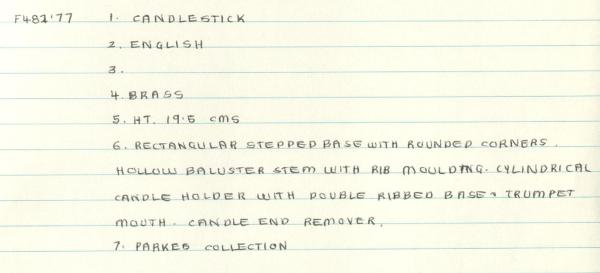 F482'77 1. CANDLESTICK
2. ENGLISH
3.
4. BRASS
5. HT. 19.5 cms
6. RECTANGULAR STEPPED BASE WITH ROUNDED CORNERS.
HOLLOW BALUSTER STEM WITH RIB MOULDING. CYLINDRICAL
CANDLE HOLDER WITH DOUBLE RIBBED BASE & TRUMPET
MOUTH. CANDLE END REMOVER.
7. PARKES COLLECTION